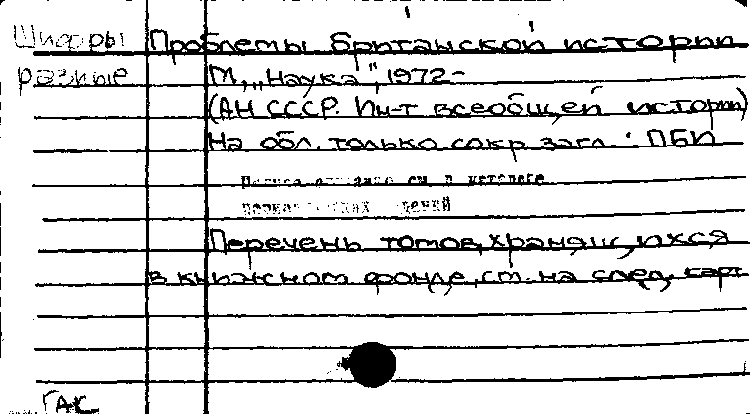 Шифры Проблемы британской истории
разные М., „Наука", 1972-
(АН СССР. Ин-т всеобщей истории)
На обл. только сокр. загл.: ПБИ
см. в каталоге
Перечень томов, хранящихся
в книжном фонде, см. на след. карт.
ГАК